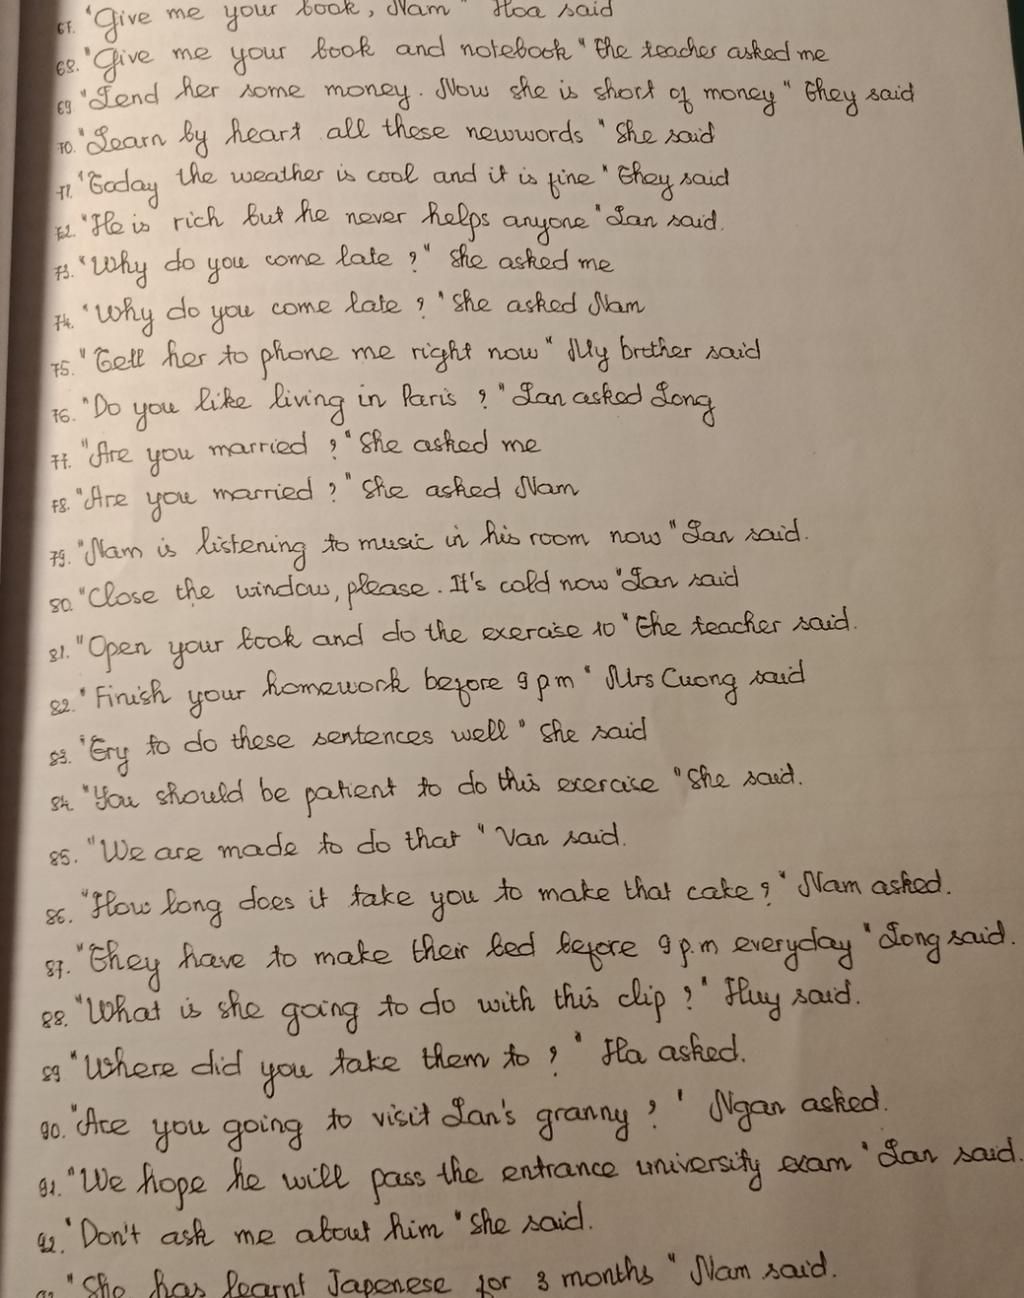 67. "Give me your book, Nam" Hoa said
68. "Give me your book and notebook" the teacher asked me
69 "Lend her some money. Now she is short of money" They said
70. "Learn by heart all these newwords" She said
71. "Today the weather is cool and it is fine" They said
72. "He is rich but he never helps anyone" Lan said.
73. "Why do you come late?" She asked me
74. "Why do you come late?" She asked Nam
75. "Tell her to phone me right now" My brother said
76. "Do you like living in Paris?" Lan asked Long
77. "Are you married?" She asked me
78. "Are you married?" She asked Nam
79. "Nam is listening to music in his room now" Lan said.
80. "Close the window, please. It's cold now" Lan said
81. "Open your book and do the exercise 10" the teacher said.
82. "Finish your homework before 9 pm" Mrs Cuong said
83. "Try to do these sentences well" She said
84. "You should be patient to do this exercise" She said.
85. "We are made to do that" Van said.
86. "How long does it take you to make that cake?" Nam asked.
87. "They have to make their bed before 9 p.m everyday" Long said.
88. "What is she going to do with this clip?" Huy said.
89 "Where did you take them to?" Ha asked.
90. "Are you going to visit Lan's granny?" Ngan asked.
91. "We hope he will pass the entrance university exam" Lan said.
92. "Don't ask me about him" She said.
"She has learnt Japenese for 3 months" Nam said.